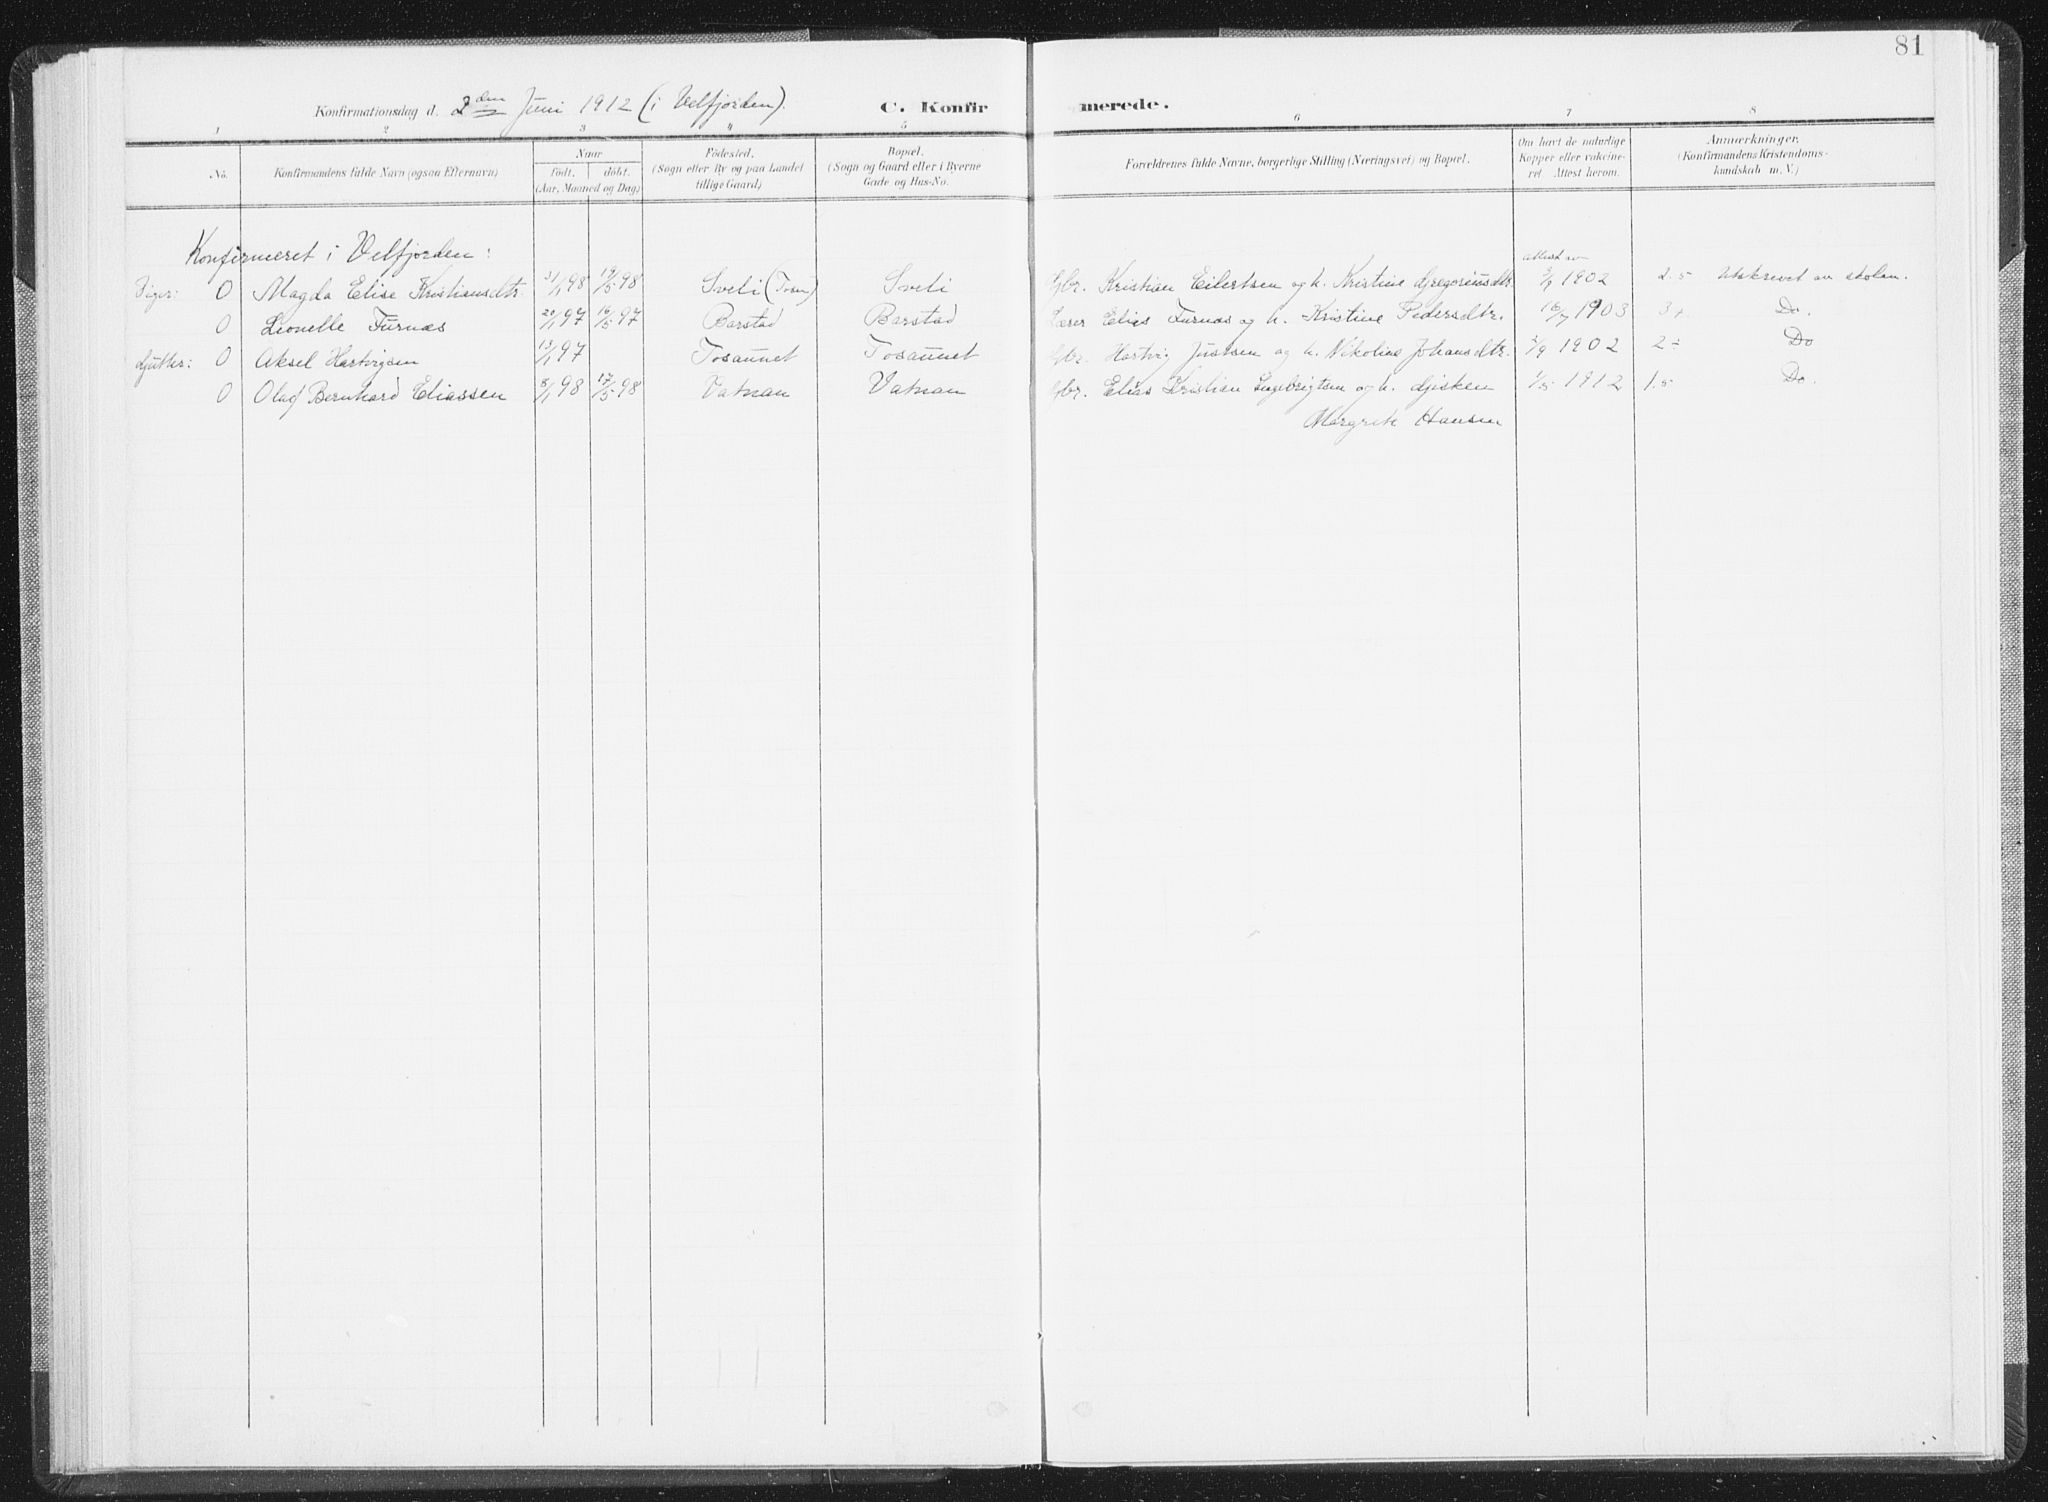 81
Konfirmationsdag d. 2den Juni 1912 (i Velfjorden). C. Konfirmerede.
1 2 3 4 5 6 7 8
No. Konfirmandens fulde Navn (ogsaa Efternavn) Naar født. døbt. (Aar, Maaned og Dag) Fødested. (Sogn eller By og paa Landet tillige Gaard) Bopæl. (Sogn og Gaard eller i Byerne Gade og Hus-No. Forældrenes fulde Navne, borgerlige Stilling (Næringsvei) og Bopæl. Om havt de naturlige Kopper eller vakcineret Attest herom. Anmærkninger, (Konfirmandens Kristendomskundskab m. V.)
Konfirmeret i Velfjorden: attest av
Piger: 0 Magda Elise Kristiansdtr. 21/1 98 19/5 98 Sveli (Tosen) Sveli Gbr. Kristian Eilertsen og h. Kristine Gregoriusdtr. 1902 2.5 Utskrevet av skolen.
0 Leonelle Furnæs 20/1 97 16/5 97 Barstad Barstad Lærer Elias Furnæs og h. Kristine Pedersdtr. 16/7 1903 3+ Do.
Gutter: 0 Aksel Hartvigsen 13/1 97 Tosaunet Tosaunet Gbr. Hartvig Justsen og h. Nikoline Johansdtr. 2/9 1902 2÷ Do
0 Olaf Bernhard Eliassen 8/1 98 17/5 98 Vatnan Vatnan Gbr. Elias Kristian Ingebrigtsen og h. Gjisken 1/5 1912 1.5 Do.
Margrete Hansen